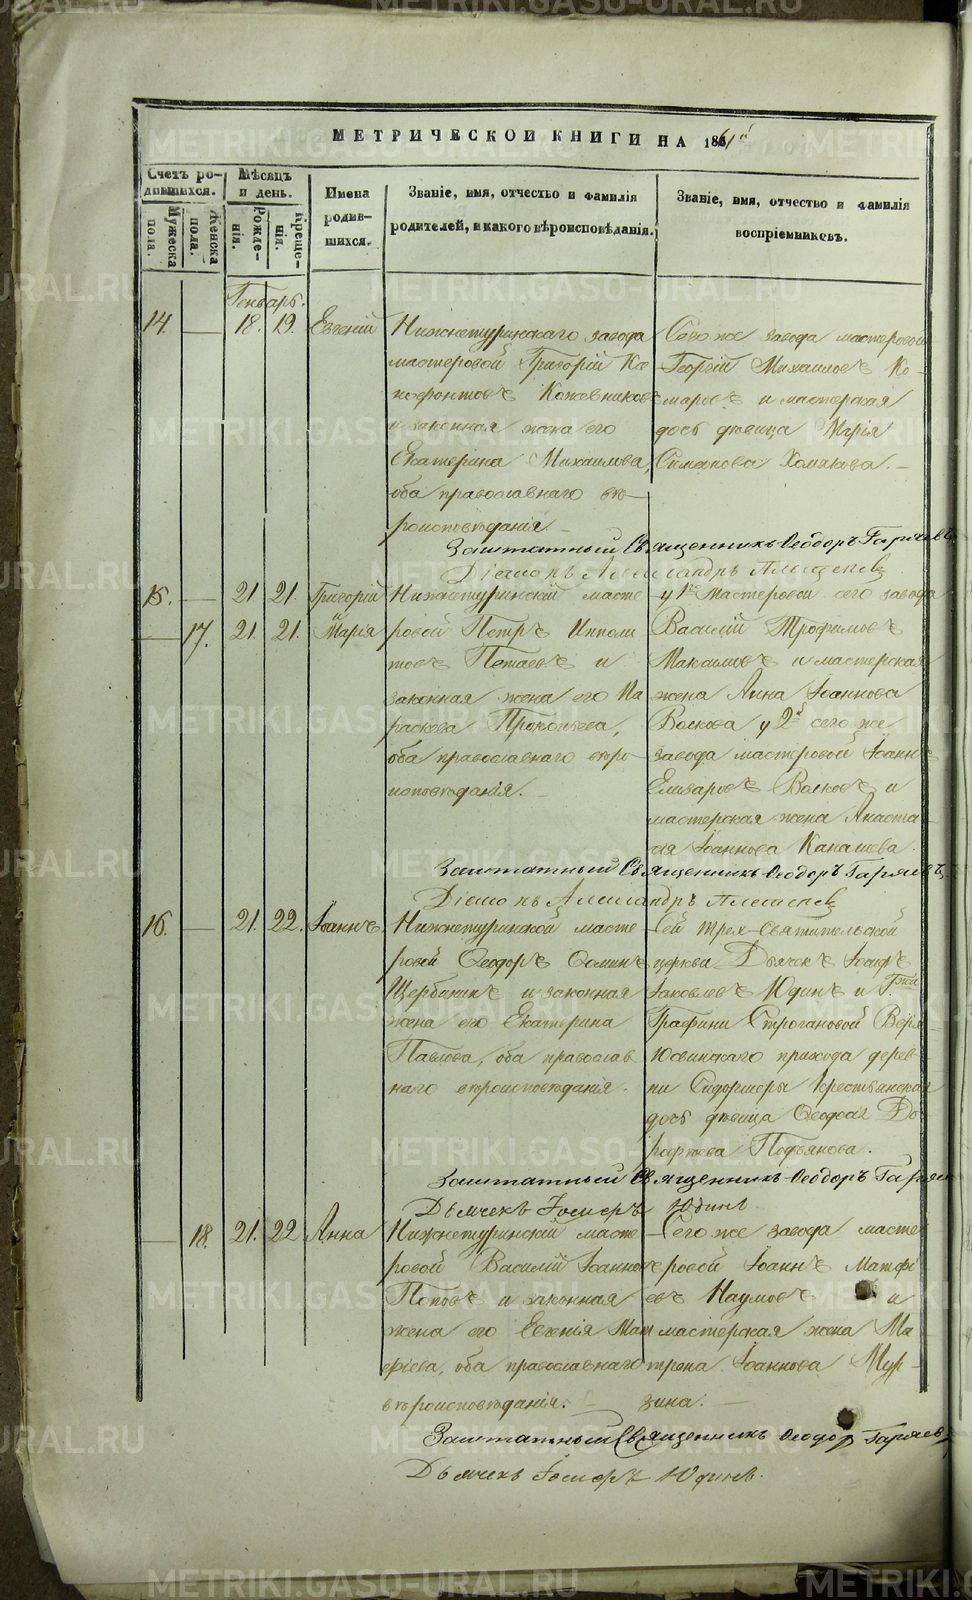 МЕТРИЧЕСКОЙ КНИГИ НА 1861й
Счетъ родившихся.
Мѣсяцъ и день.
Имена родившихся.
Званіе, имя, отчество и фамилія родителей, и какого вѣроисповѣданія.
Званіе, имя, отчество и фамилія воспріемниковъ.
Мужеска пола.
Женска пола.
Рожденія.
Крещенія.
Генварь.
14. — 18. 19. Евгеній
Нижнетуринскаго завода
мастеровой Григорій
Ксенофонтовъ Кожевниковъ
и законная жена его
Екатерина Михаилова,
оба православнаго вѣ-
роисповѣданія. —
Сего же завода мастеровой
Георгій Михаиловъ Ко-
маровъ и мастерская
дочь дѣвица Марія
Симонова Хомякова. —
Заштатный Священникъ Ѳеодоръ Гаряевъ
Діаконъ Александръ
15. — 21. 21. Григорій
и
— 17. 21. 21. Марія
Нижнетуринскій масте
ровой Петръ Ипполи
товъ и
законная жена его Па
раскева Прокопьева,
оба православнаго вѣро-
исповѣданія. —
у 1го мастеровой сего завода
Василій Трофимовъ
и мастерская
жена Анна Іоаннова
Волкова у 2й сего же
завода мастеровой Іоаннъ
Елизаровъ Волковъ и
мастерская жена Анаста-
сія Іоаннова
Заштатный Священникъ Ѳеодоръ Гаряевъ
Діаконъ Александръ
16. — 21. 22. Іоаннъ.
Нижнетуринской масте
ровой Ѳеодоръ Ѳоминъ
Щербининъ и законная
жена его Екатерина
Павлова, оба православ
наго вѣроисповѣданія.
Сей Трех-Святительской
церкви Дьячекъ Іосифъ
Іаковлевъ Юдинъ и Гжи
Графини Строгановой Верх-
Юсвинскаго прихода дерев-
ни Сидоршоры крестьянская
дочь дѣвица Ѳеодосія До
роѳеева
Заштатный Священникъ Ѳеодоръ Гаряевъ
Дьячекъ Іосифъ Юдинъ
— 18. 21. 22. Анна
Нижнетуринскій масте
ровой Василій Іоанновъ
Поповъ и законная
жена его Евгенія Мат
фіева, оба православнаго
вѣроисповѣданія. —
Сего же завода масте
ровой Іоаннъ Матфі
евъ Наумовъ и
мастерская жена Ма
трона Іоаннова Мур-
зина. —
Заштатный Священникъ Ѳеодоръ Гаряевъ
Дьячекъ Іосифъ Юдинъ.
METRIKI.GASO-URAL.RU